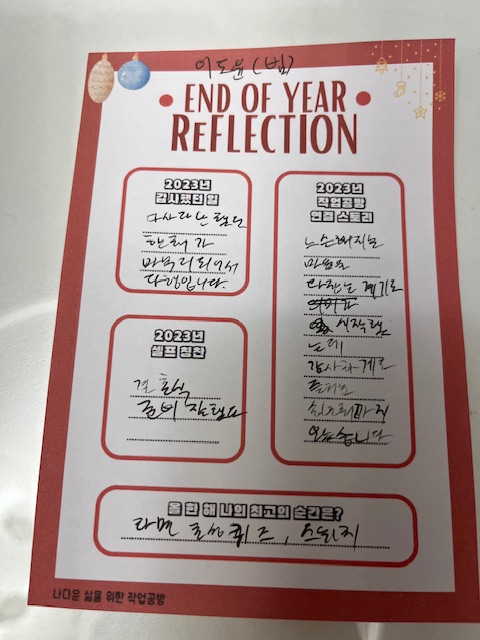 이도윤(범)
END OF YEAR
REFLECTION
2023년
감사했던 일
다사다난 했던
한해가
마무리되어서
다행입니다
2023년
작업공방
연결 스토리
느슨해지는
마음을
다잡는 계기로
시작했
는데
감사하게도
까지
왔습니다
2023년
셀프 칭찬
결혼식
준비 잘했다
올 한 해 나의 최고의 순간은?
라면 퀴즈,
나다운 삶을 위한 작업공방